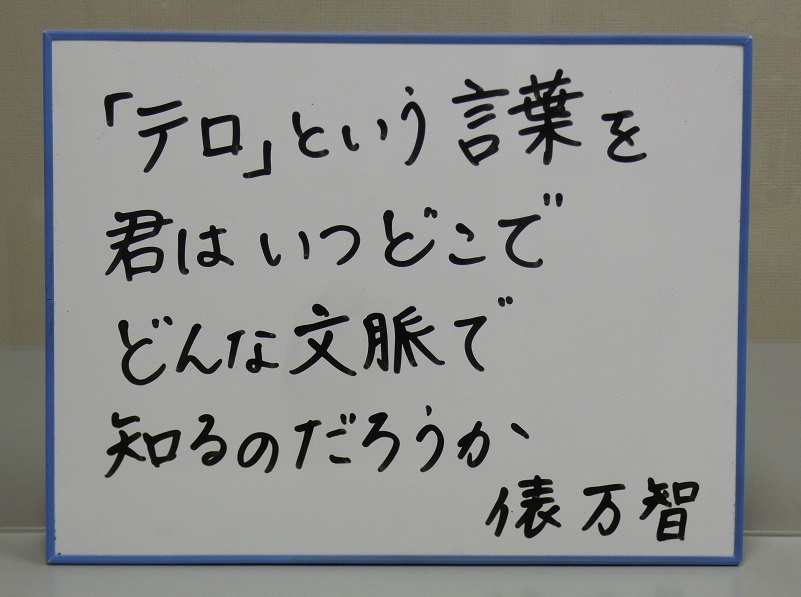 「テロ」という言葉を
君はいつどこで
どんな文脈で
知るのだろうか
俵万智